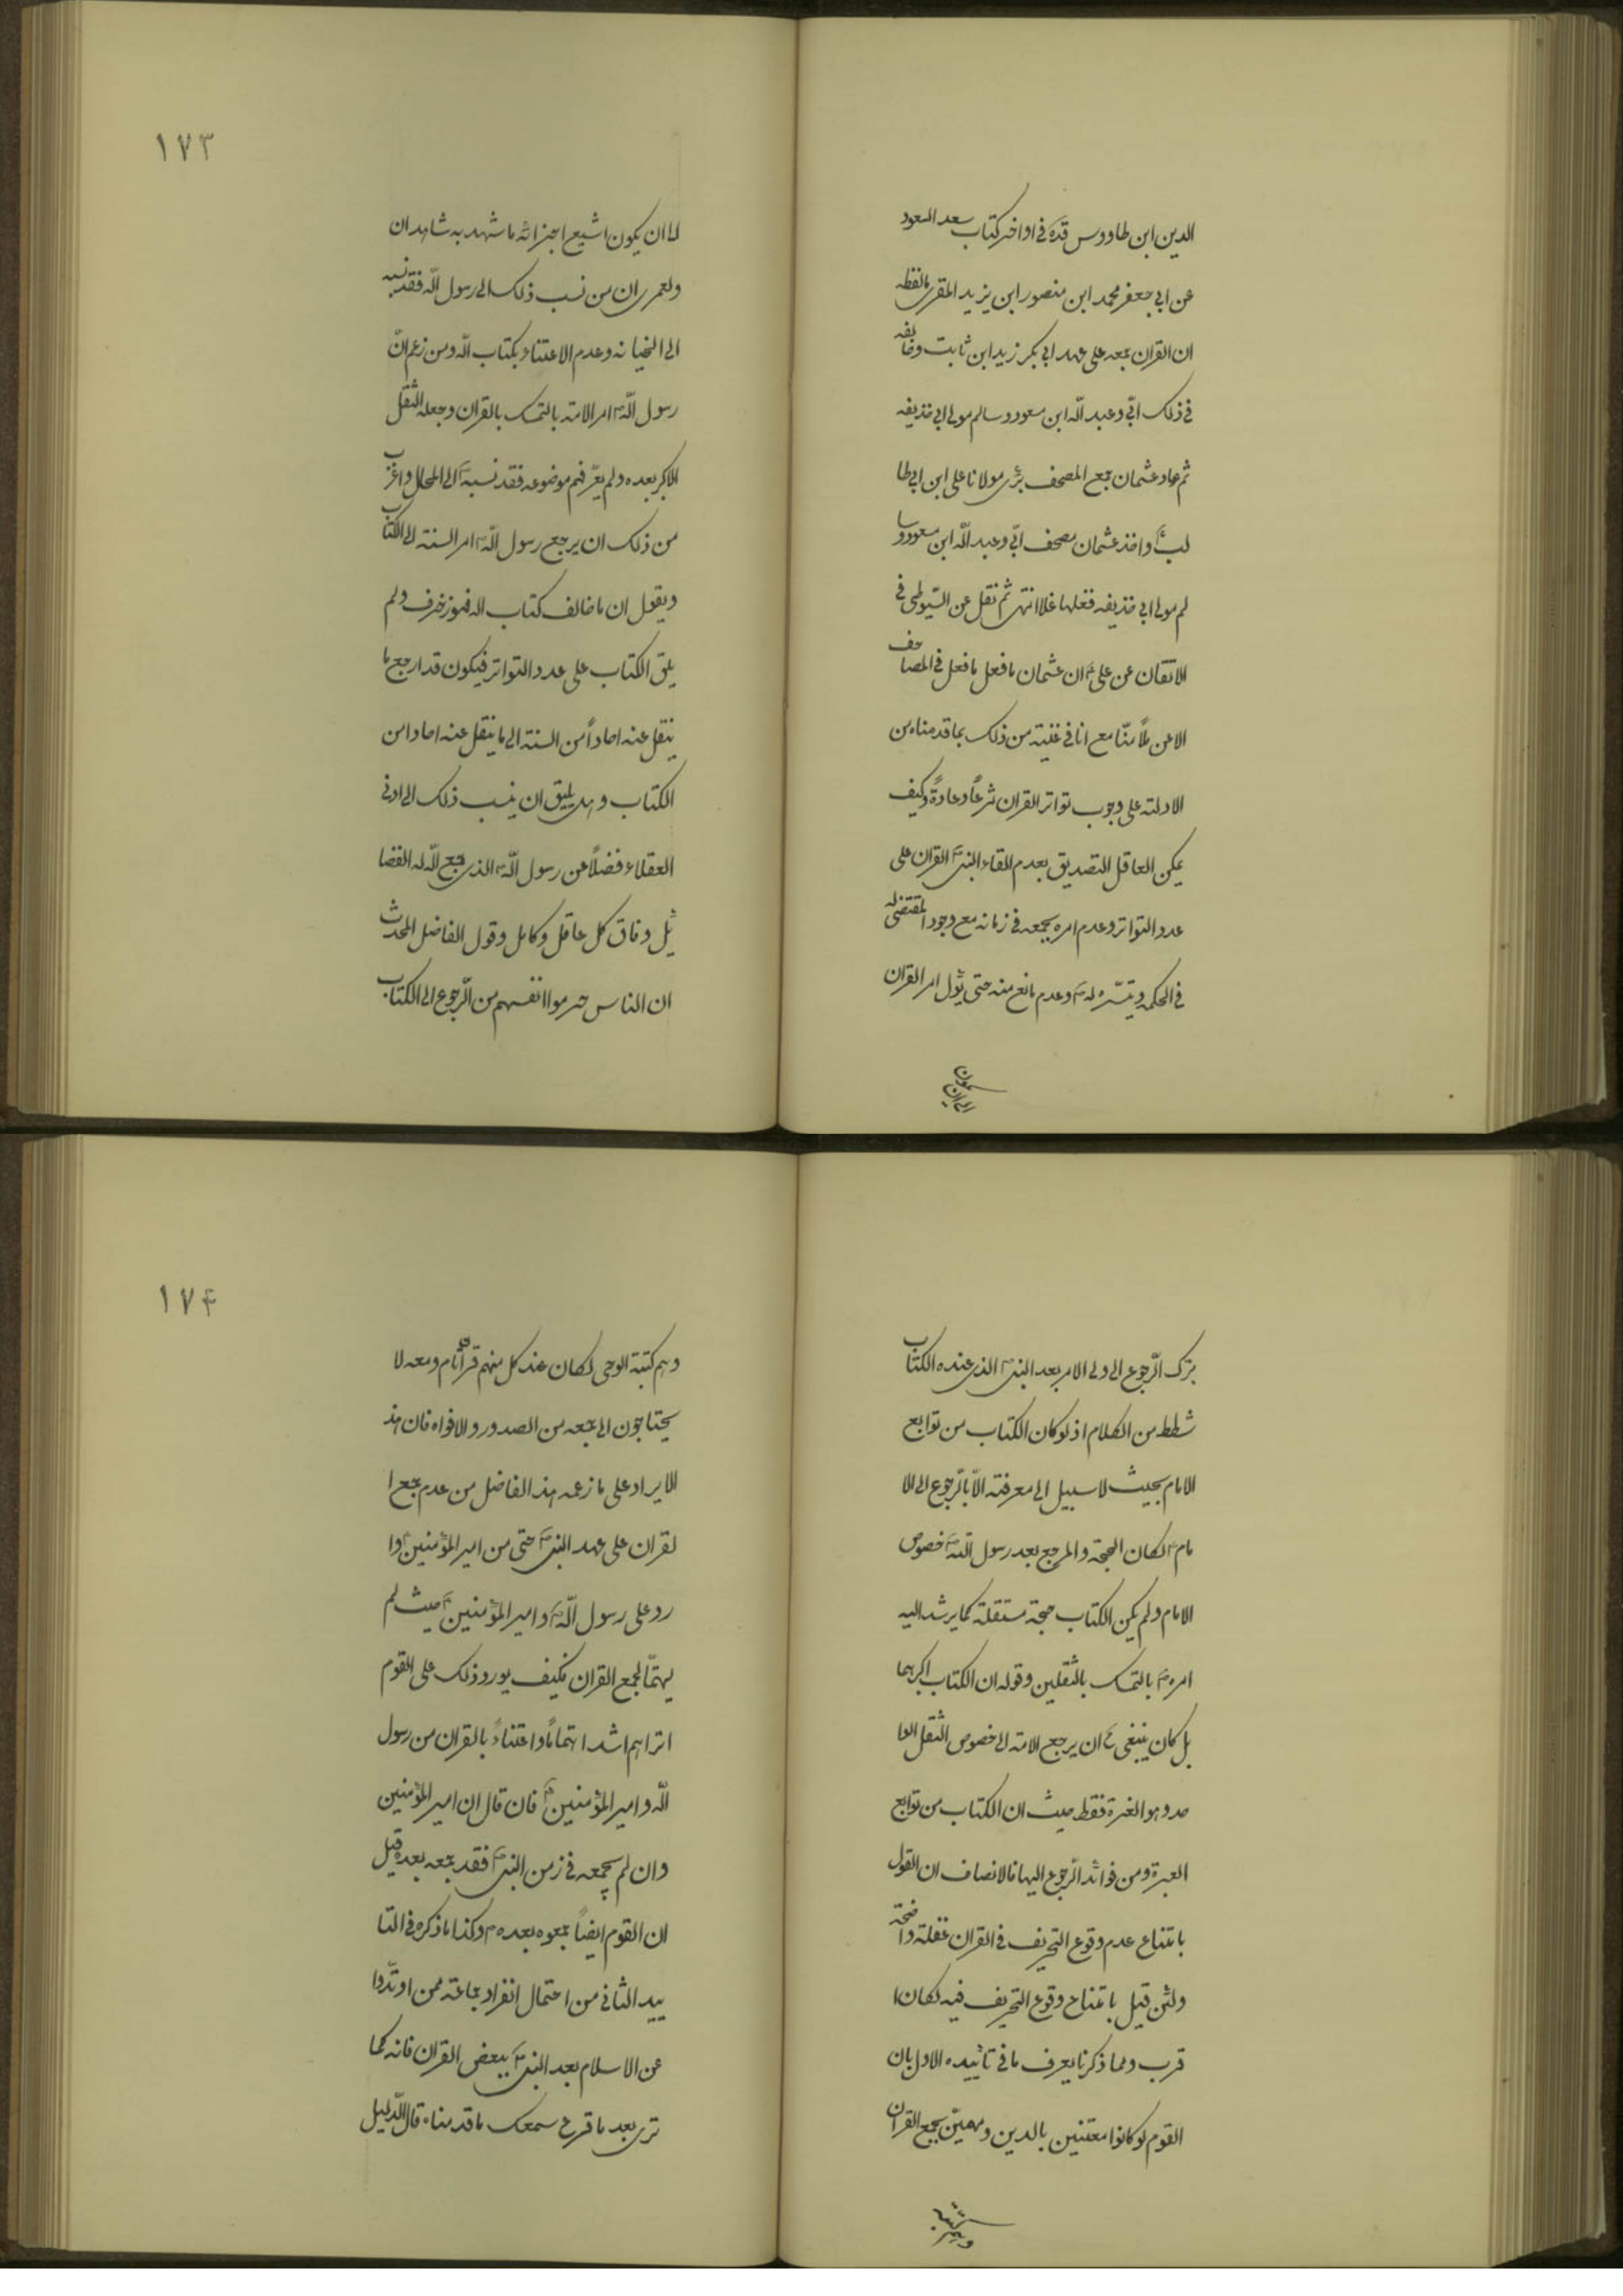 الدين ابن طاووس قده فى اواخر كتاب سعد السعود
عن ابى جعفر محمد ابن منصور ابن يزيد المقرى بالفظه
ان القران جمعه على عهد ابى بكر زيد ابن ثابت وخالفه
فى ذلك ابىّ وعبد اللّه ابن مسعود وسالم مولى ابى حذيفه
ثم عاد عثمان جمع المصحف برأى مولانا على ابن ابى طا
لبؑ واخذ عثمان مصحف ابىّ وعبد اللّه ابن مسعود وسا
لم مولى ابى حذيفه فغلها غلا انتهى ثم نقل عن السّيوطى فى
الاتقان عن علىؑ ان عثمان ما فعل ما فعل فى المصاحف
الا عن ملأ منّا مع انا فى غنية من ذلك بما قدمناه من
الادلته على وجوب تواتر القران شرعاً وعادةً وكيف
يمكن العاقل التصديق بعدم القاء النبىؐ القران على
عدد التواتر وعدم امره بجمعه فى زمانه مع وجود المقتضى له
فى الحكمه وتيسّره لهؐ وعدم مانع منه حتى يؤل امر القران
١٧٣
لما ان يكون اشيع اجزائه ما شهد به شاهدان
ولعمرى ان من نسب ذلك الى رسول اللّه فقد نسبه
الى الخيانه وعدم الاعتناء بكتاب اللّه ومن زعم انّ
رسول اللّهؐ امر الامته بالتمسك بالقران وجعله الثقل
الاكبر بعده ولم يعرّفهم موضوعه فقد نسبهؐ الى المحال واغرب
من ذلك ان يرجع رسول اللّهؐ امر السنته الى الكتاب
ويقول ان ما خالف كتاب اله فهو زخرف ولم
يلق الكتاب على عدد التواتر فيكون قد ارجع ما
ينقل عنه احاداً من السنته الى ما ينقل عنه احاد امن
الكتاب وهل يليق ان ينسب ذلك الى ادنى
العقلاء فضلاً عن رسول اللّهؐ الذى جمع اللّه له الفضا
ئل وفاق كل عاقل وكامل وقول الفاضل المحدث
ان الناس حرموا انفسهم من الرّجوع الى الكتاب
بترك الرّجوع الى ولى الامر بعد النبىؐ الذى عنده الكتاب
شطط من الكلام اذ لو كان الكتاب من توابع
الامام بحيث لا سبيل الى معرفته الاّ بالرّجوع الى الا
مامؑ لكان الحجة والمرجع بعد رسول اللّهؐ خصوص
الامام ولم يكن الكتاب حجة مستقلة كما يرشد اليه
امرهؐ بالتمسك بالثقلين وقوله ان الكتاب اكبرهما
بل كان ينبغى ؐ ان يرجع الامته الى خصوص الثقل الوا
حد وهو العترة فقط حيث ان الكتاب من توابع
العترة ومن فوائد الرّجوع اليها فالانصاف ان القول
بامتناع عدم وقوع التحريف فى القران غفلة واضحة
ولئن قيل بامتناع وقوع التحريف فيه لكان ا
قرب ومما ذكرنا يعرف ما فى تأييده الاول بان
القوم لو كانوا معتنين بالدين ومهمّين بجمع القران
١٧۴
وهم كتبة الوحى لكان عند كل منهم قرآن تام ومعه لا
يحتاجون الى جمعه من الصدور والافواه فان هذ
الايراد على ما زعمه هذ الفاضل من عدم جمع ا
لقران على عهد النبىؐ حتى من امير المؤمنينؑ وا
رد على رسول اللّهؐ وامير المؤمنينؑ حيث لم
يهتمّا لجمع القران فكيف يورد ذلك على القوم
اتراهم اشد اهتماماً واعتناءً بالقران من رسول
اللّه وامير المؤمنينؑ فان قال ان امير المؤمنين
وان لم يجمعه فى زمن النبىؐ فقد جمعه بعده قيل
ان القوم ايضاً جمعوه بعدهؐ وكذا ما ذكره فى التا
ييد الثانى من احتمال انفراد جماعته ممن ارتدّوا
عن الاسلام بعد النبىؐ ببعض القران فانه كما
ترى بعد ما قرع سمعك ما قدمناه قال الدّليل